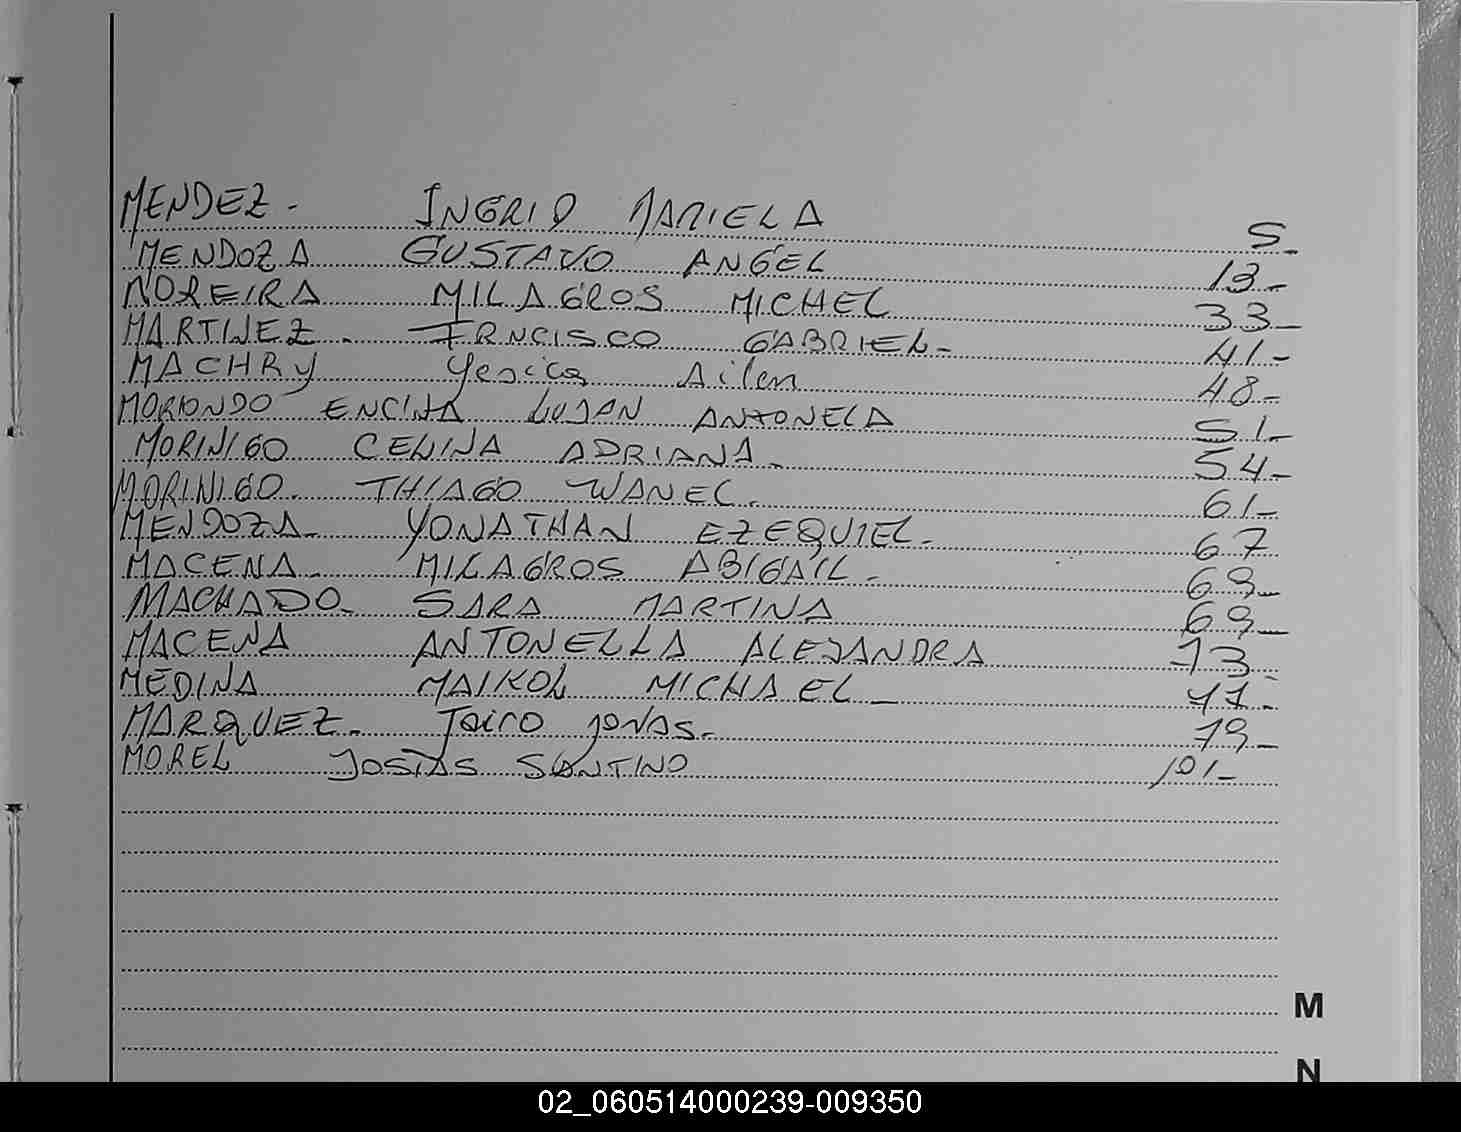 MENDEZ - INGRID MARIELA 5-
MENDOZA GUSTAVO ANGEL 13-
MOREIRA MILAGROS MICHEL 33-
MARTINEZ - FRNCISCO GABRIEL - 41-
MACHRY Yesica Ailen 48-
MORONDO ENCINA LUJAN ANTONELA 51-
MORINIGO CELINA ADRIANA - 54-
MORINIGO - THIAGO WANEL - 61-
MENDOZA - YONATHAN EZEQUIEL - 67
MACENA - MILAGROS ABIGAIL - 69-
MACHADO - SARA MARTINA 69-
MACENA ANTONELLA ALEJANDRA 73
MEDINA MAIKOL MICHAEL - 77-
MARQUEZ - Jairo jonas - 79-
MOREL JOSIAS SANTINO 101-
M
N
02_060514000239-009350